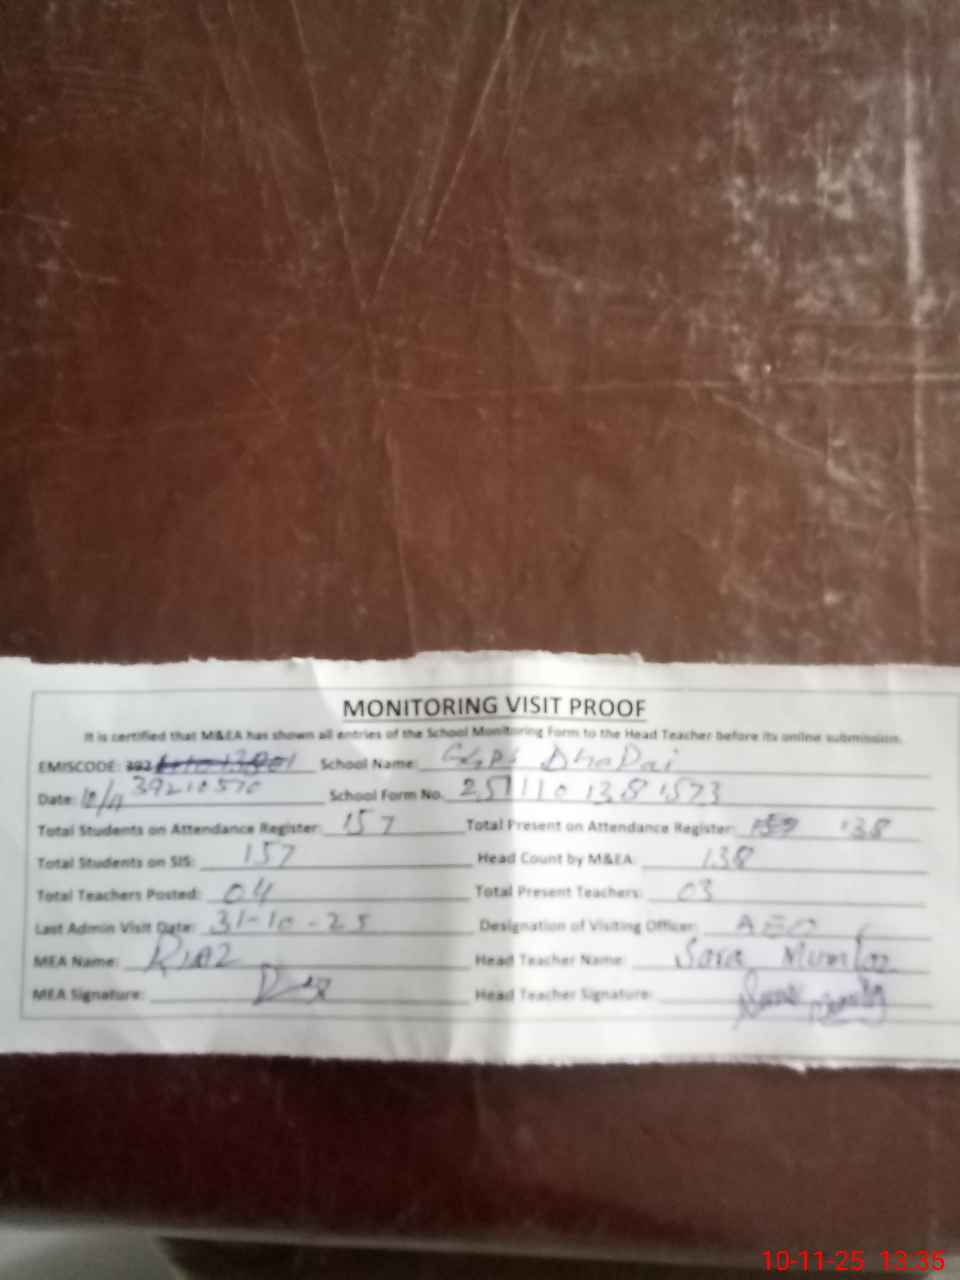 MONITORING VISIT PROOF
It is certified that M&EA has shown all entries of the School Monitoring Form to the Head Teacher before its online submission.
EMISCODE: 392 School Name: GGPS Dhapai
Date: 10/11 39210570 School Form No. 2511101381573
Total Students on Attendance Register: 157 Total Present on Attendance Register: 138
Total Students on SIS: 157 Head Count by M&EA: 138
Total Teachers Posted: 04 Total Present Teachers: 03
Last Admin Visit Date: 31-10-25 Designation of Visiting Officer: AEO
MEA Name: Riaz Head Teacher Name: Sara Mumtaz
MEA Signature: Head Teacher Signature:
10-11-25 13:35